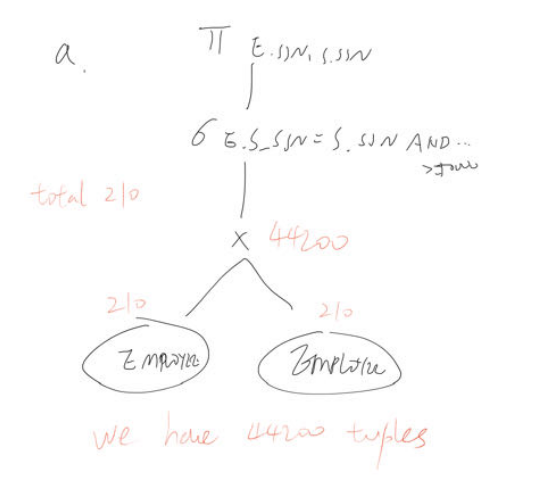 a.
π E.SSN, S.SSN
σ E.S_SSN = S.SSN AND ...
total 210
× 44200
210 210
EMPLOYEE Employee
we have 44200 tuples